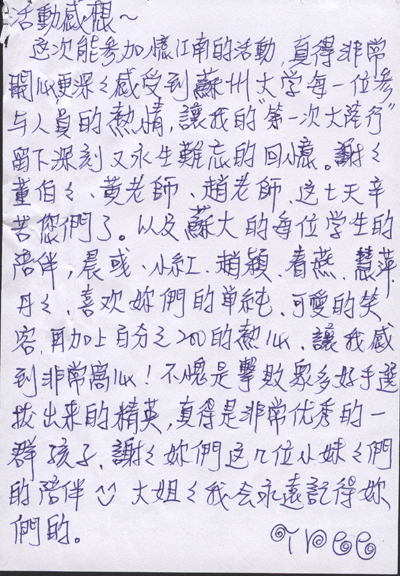 活動感想~
这次能參加憶江南的活動,真得非常
開心更深々感受到蘇州大学每一位參
与人員的熱情,讓我的"第一次大陸行"
留下深刻又永生難忘的回憶。謝々
董伯々、黄老師、趙老師、这七天辛
苦您們了。以及蘇大的每位学生的
陪伴,晨彧、小紅、趙穎、春燕、慧萍、
丹々、喜欢妳們的单純、可愛的笑
容,再加上百分之200的熱心、讓我感
到非常窩心!不愧是擊敗眾多好手選
拔出來的精英,真得是非常优秀的一
群孩子、謝々妳們这几位小妹々們
的陪伴 大姐々我会永遠記得妳
們的。 Tree